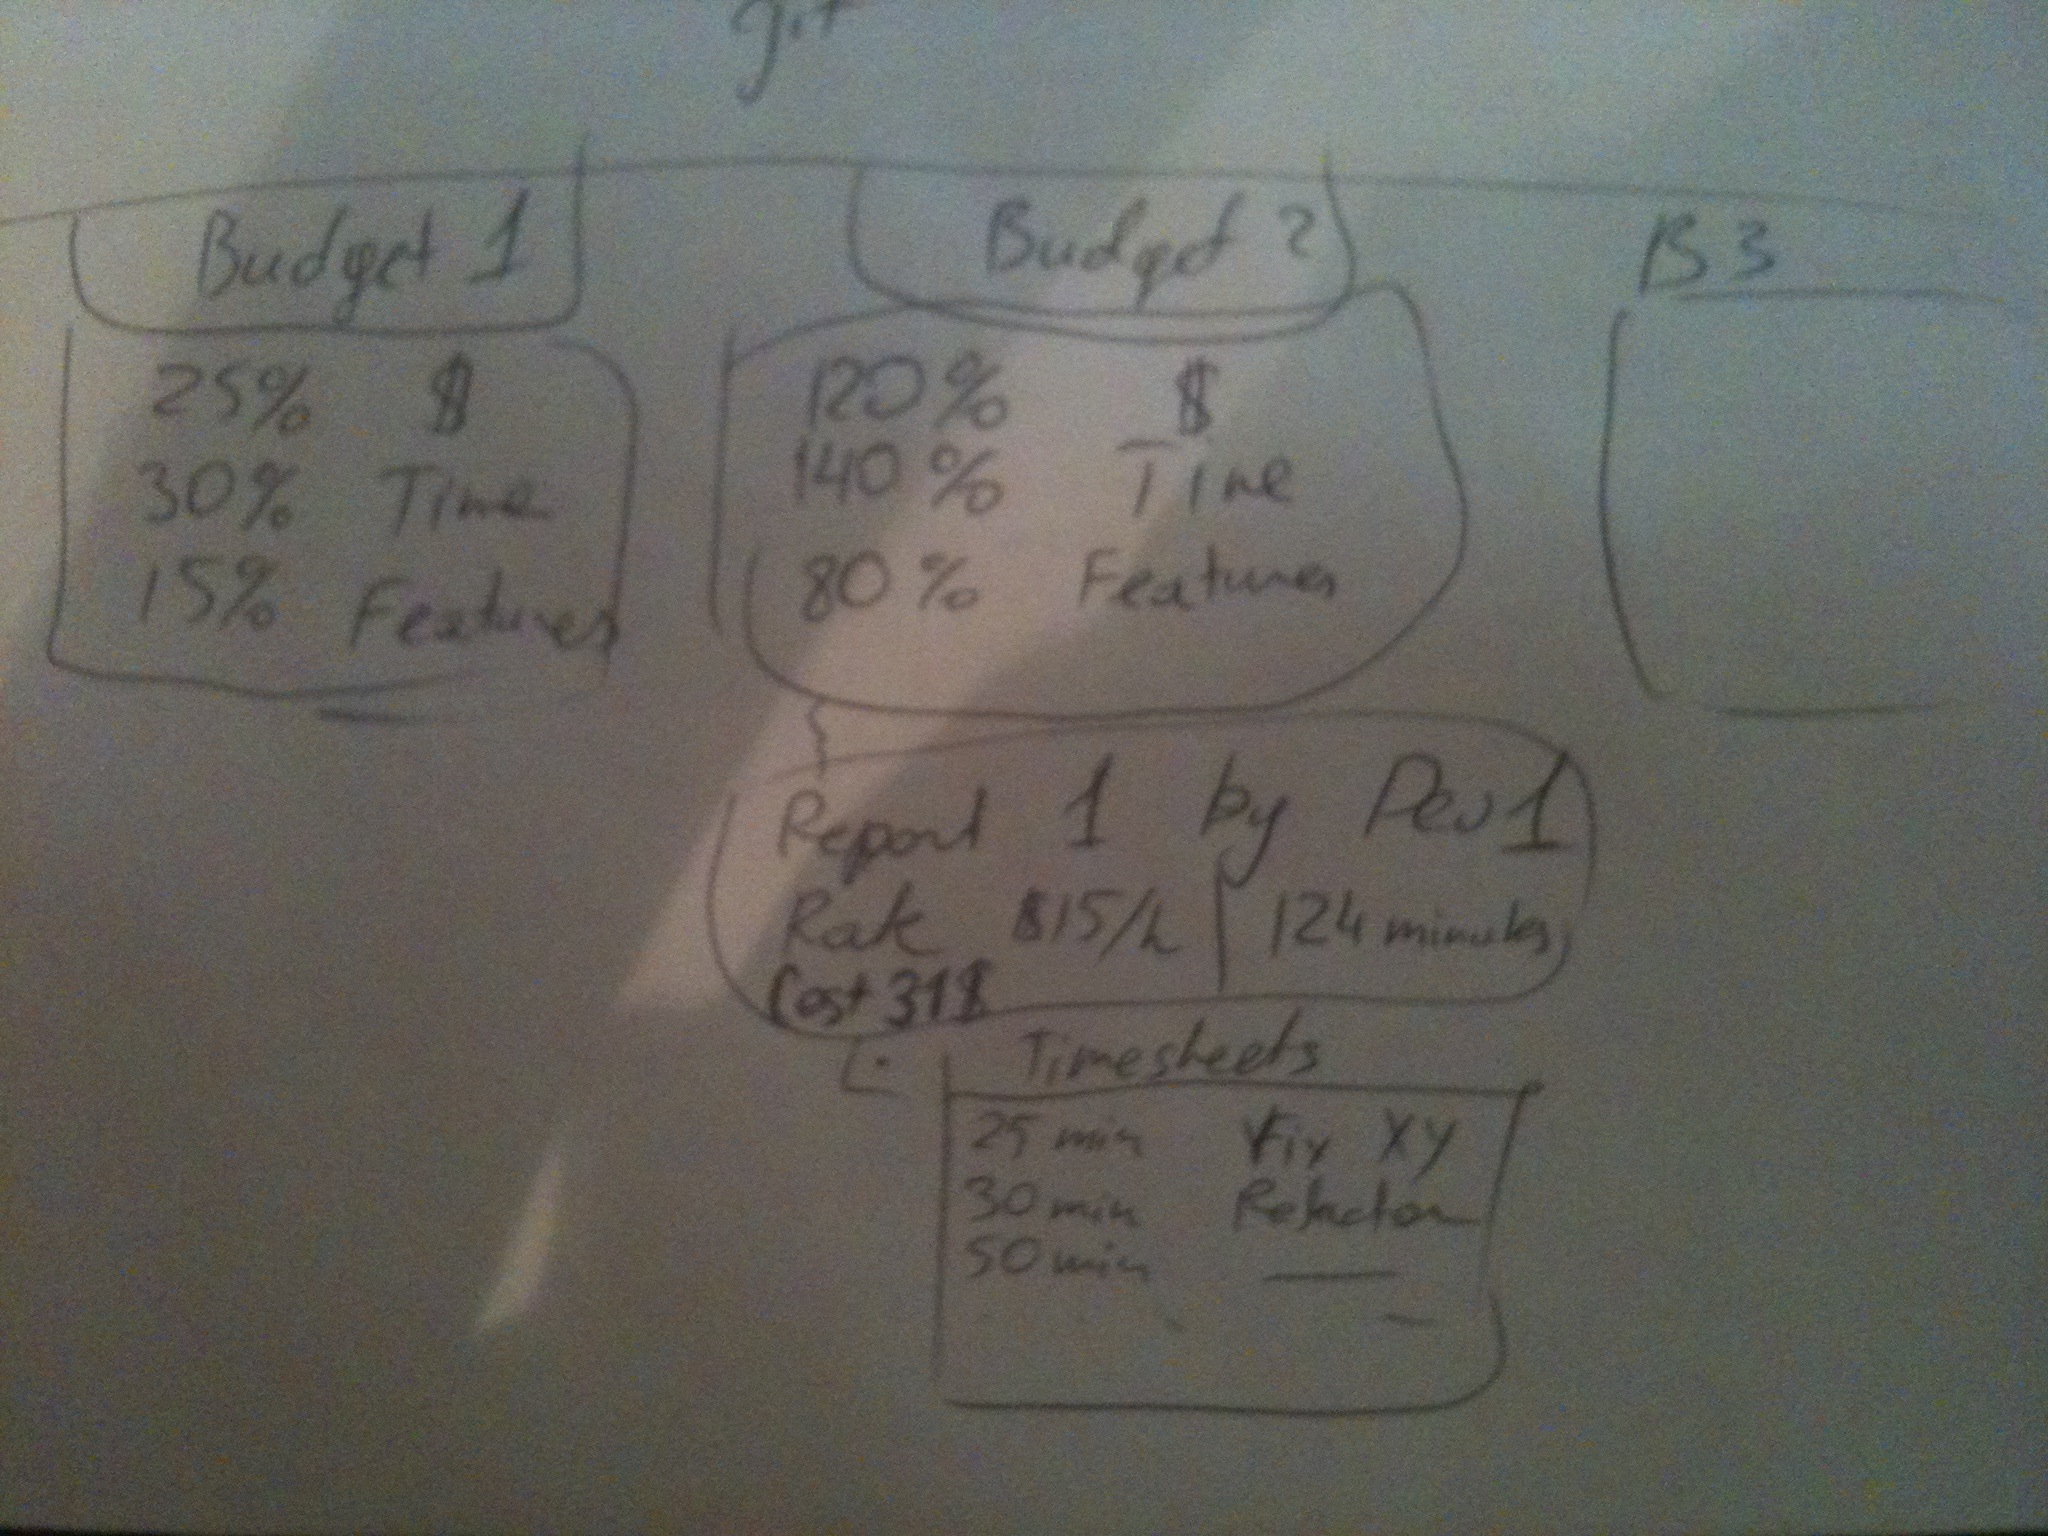 git
Budget 1
25% $
30% Time
15% Features
Budget 2
120% $
140% Time
80% Features
B3
Report 1 by Dev1
Rate $15/h | 124 minutes
Cost 31$
Timesheets
25 min Fix XY
30 min Refactor
50 min